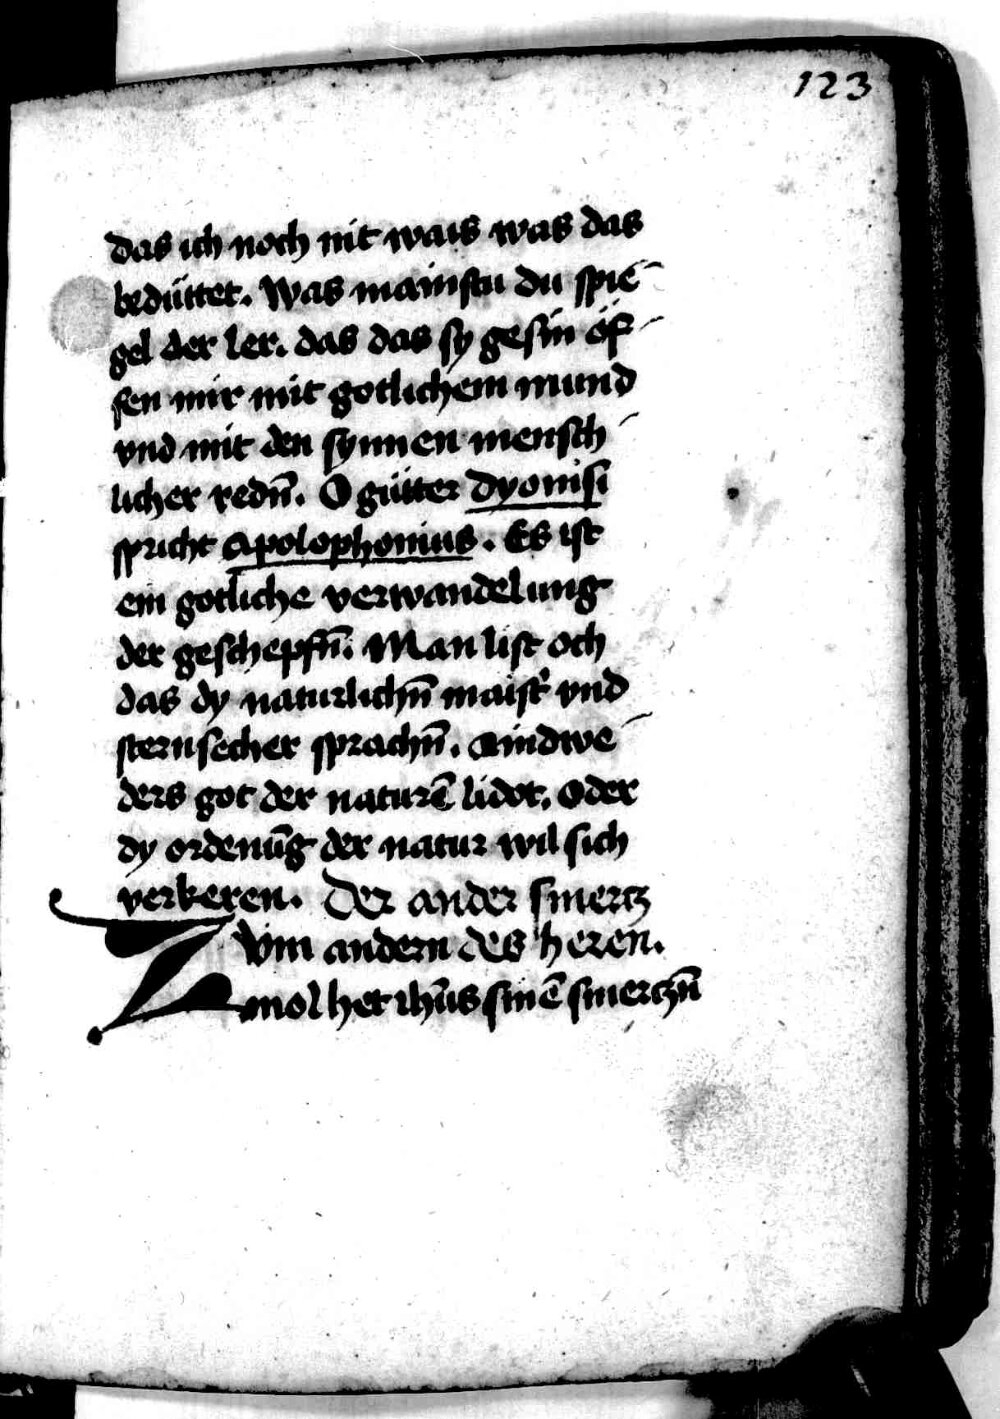 123
das ich noch nit wais was das
bedüttet. Was mainstu du spie
gel der ler. das das sy gesin öf
fen mir mit gotlichem mund
vnd mit den synnen mensch
licher redn̄. O gütter dyonisi
spricht Apolophonius. Es ist
ein gotliche verwandelung
der geschepfn̄. Man list och
das dy naturlichn̄ maist' vnd
sternsecher sprachn̄. Aindwe
ders got der naturē lidot. oder
dy ordenūg der natur wil sich
verkeren. Der ander smertz
Zvm andern des heren.
mol het ihūs sinē smertzn̄